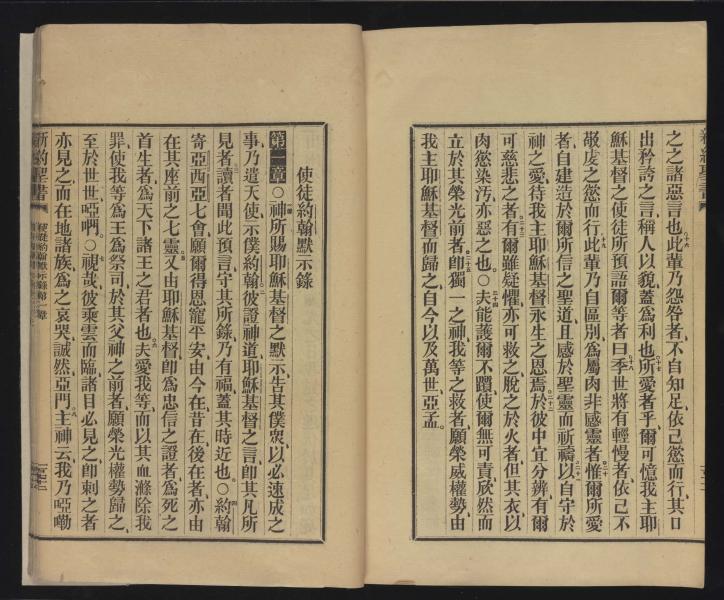 之之諸惡言也此輩乃怨咎者不自知足依己慾而行其口
出矜誇之言稱人以貌蓋爲利也所愛者乎爾可憶我主耶
穌基督之使徒所預語爾等者曰季世將有輕慢者依己不
敬虔之慾而行此輩乃自區別爲屬肉非感靈者惟爾所愛
者自建造於爾所信之聖道且感於聖靈而祈禱以自守於
神之愛待我主耶穌基督永生之恩焉於彼中宜分辨有爾
可慈悲之者有爾雖疑懼亦可救之脫之於火者但其衣以
肉慾染污亦惡之也○夫能護爾不躓使爾無可責欣然而
立於其榮光前者卽獨一之神我等之救者願榮威權勢由
我主耶穌基督而歸之自今以及萬世亞孟
使徒約翰默示錄
第一章○神所賜耶穌基督之默示告其僕衆以必速成之
事乃遣天使示僕約翰彼證神道耶穌基督之言卽其凡所
見者讀者聞此預言守其所錄乃有福蓋其時近也○約翰
寄亞西亞七會願爾得恩寵平安由今在昔在後在者亦由
在其座前之七靈又由耶穌基督卽爲忠信之證者爲死之
首生者爲天下諸王之君者也夫愛我等而以其血滌除我
罪使我等爲王爲祭司於其父神之前者願榮光權勢歸之
至於世世啞啊○視哉彼乘雲而臨諸目必見之卽刺之者
亦見之而在地諸族爲之哀哭誠然亞門主神云我乃啞嘞
新約聖書